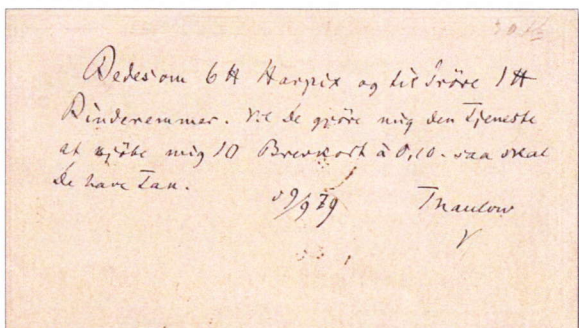 Bedes om 6 ℔ Harpix og til Pröve 1 ℔
Binderemmer. Vil De gjöre mig den Tjeneste
at kjöbe mig 10 Brevkort à 0,10. saa skal
De have Tak.
29/9 79 Thaulow